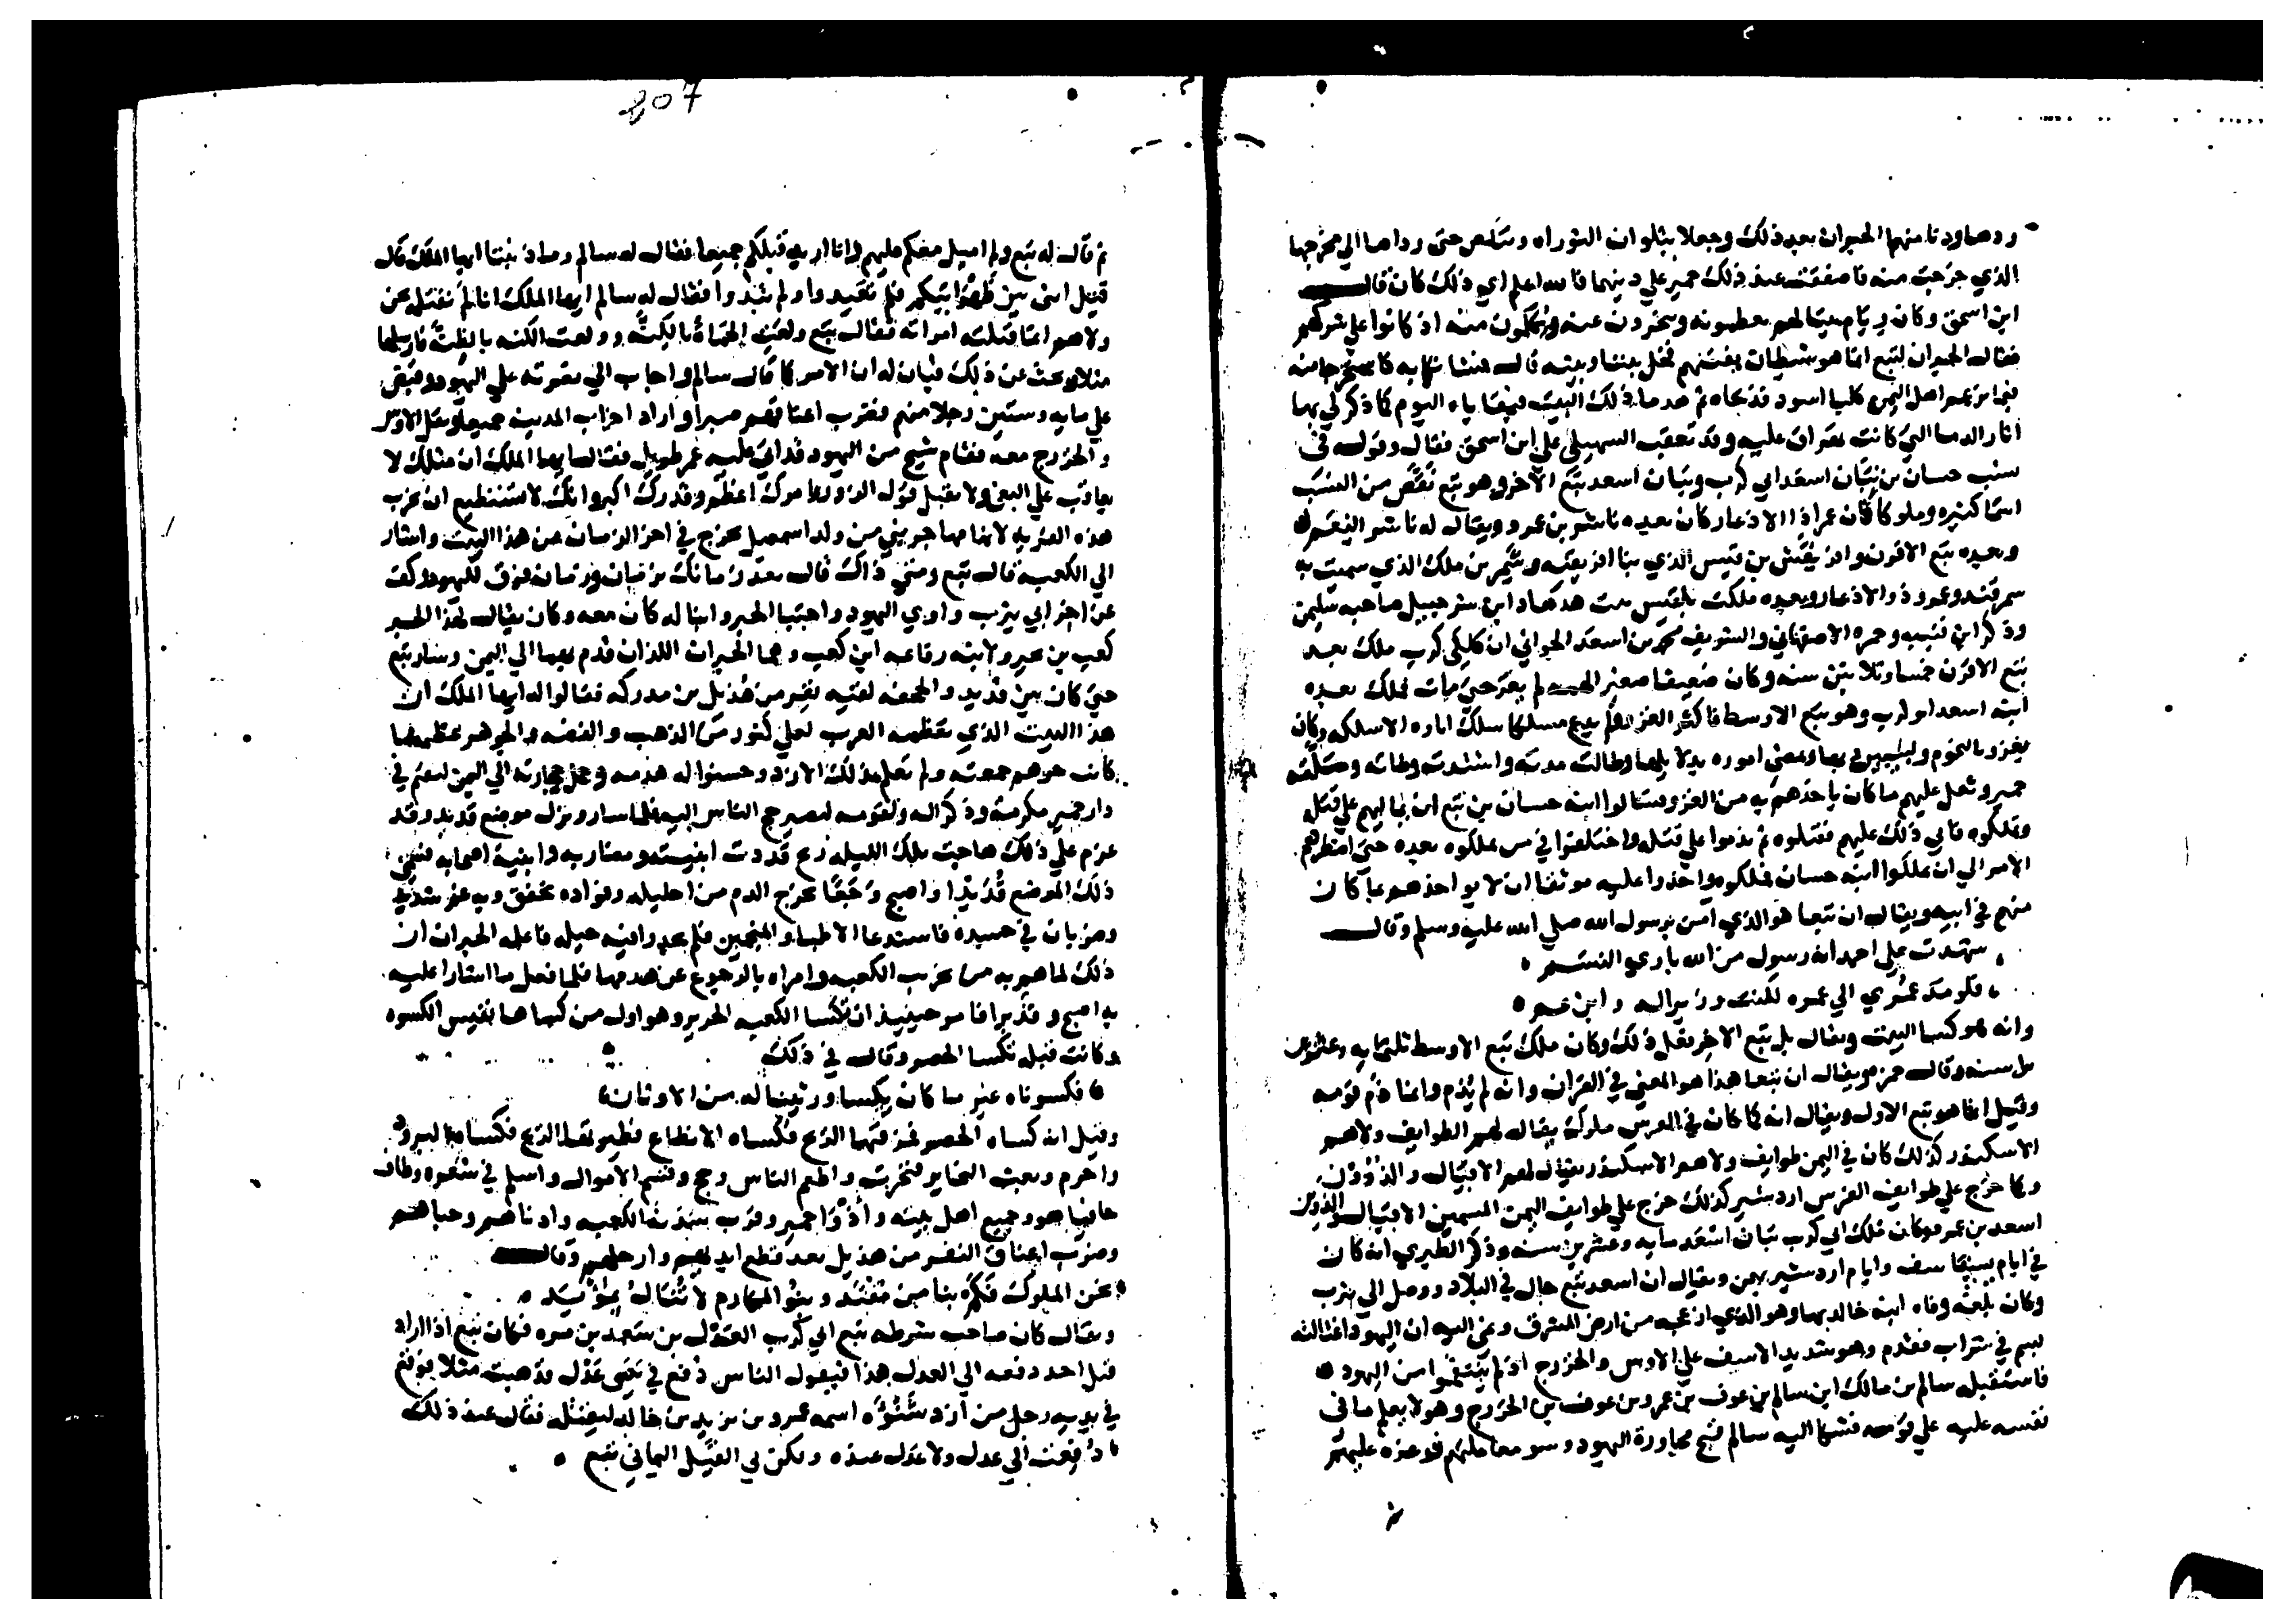 ردها ودنا منها الحبران بعد ذلك وجعلا يتلوان التوراه وتنكص حتى رداها الي مخرجها
الذي خرجت منه فاصفقت عند ذلك حمير علي دينهما فالله اعلم اي ذلك كان قال
ابن اسحق وكان ريام بيتا لهم يعظمونه وينحرون عنده ويكلمون منه اذ كانوا علي شركهم
فقال الحبران لتبع انما هو شيطان يفتنهم فخل بيننا وبينه قال فشانكما به فاستخرجا منه
فيما يزعم اهل اليمن كلبا اسود فذبحاه ثم هدما ذلك البيت فبقاياه اليوم كما ذكر لي بها
اثار الدما التي كانت تهراق عليه وقد تعقب السهيلي علي ابن اسحق فقال وقوله في
نسب حسان بن تبان اسعد ابي كرب وتبان اسعد تبع الاخر وهو تبع نقص من النسب
اسما كثيره وملوكا فان عمرا ذا الاذعار كان بعده ناشر بن عمرو ويقال له ناشر النعم
وبعده تبع الاقرن وافريقيش بن قيس الذي بنا افريقيه وشمر بن ملك الذي سميت به
سمرقند وعمرو ذو الاذعار وبعده ملكت بلقيس بنت هدهاد ابن شرحبيل صاحبه سليمن
وذكر ابن قتيبه وحمزه الاصفهاني والشريف محمد بن اسعد الجواني ان كليكرب ملك بعد
تبع الاقرن خمسا وثلاثين سنه وكان ضعيفا صغير الهمه لم يغز حتى مات فملك بعده
ابنه اسعد ابو كرب وهو تبع الاوسط فاكثر الغزو فلم يدع مسلكا سلك اباوه الا سلكه وكان
يغزو بالنجوم ويسير بها ويمضي اموره بدلايلها وطالت مدته واشتدت وطاته وملته
حمير وثقل عليهم ما كان ياخذهم به من الغزو فسالوا ابنه حسان بن تبع ان يماليهم علي قتله
ويملكوه فابي ذلك عليهم فقتلوه ثم ندموا علي قتله واختلفوا في من يملكوه بعده حتى اضطرهم
الامر الي ان يملكوا ابنه حسان فملكوه واخذوا عليه موثقا ان لا يواخذهم بما كان
منهم في ابيه ويقال ان تبعا هو الذي امن برسول الله صلي الله عليه وسلم وقال
شهدت علي احمد انه رسول من الله باري النسم
فلو مد عمري الي عمره لكنت وزيرا له وابن عم
وانه هو كسا البيت ويقال بل تبع الاخر فعل ذلك وكان ملك تبع الاوسط ثلثمايه وعشرين
سنه وقال حمزه ويقال ان تبعا هذا هو المعني في القران وانه لم يذم وانما ذم قومه
وقيل انما هو تبع الاول ويقال انه كما كان في الفرس ملوك يقال لهم الطوايف ولاهم
الاسكندر كذلك كان في اليمن طوايف ولاهم الاسكندر يقال لهم الاقيال والذوون
وكما خرج علي طوايف الفرس اردشير كذلك خرج علي طوايف اليمن المسمين الاقيال والذوين
اسعد بن عمرو وكان ملك ابي كرب تبان اسعد مايه وعشرين سنه وذكر الطبري انه كان
في ايام بشتاسف وايام اردشير بهمن ويقال ان اسعد تبع جال في البلاد ووصل الي يثرب
وكان بلغه وفاه ابنه خالد بها وهو الذي ازعجه من ارض المشرق ونمي اليه ان اليهود اغتالته
بسم في شراب فقدم وهو شديد الاسف علي الاوس والخزرج اذ لم ينتقموا من اليهود
فاستقبله سالم بن مالك ابن سالم بن عوف بن عمرو بن عوف بن الخزرج وهو لا يعلم ما في
نفسه عليه علي قومه فشكا اليه سالم قبح مجاورة اليهود وسو معاملتهم فوعده عليهم
807
ثم قال له تبع ولم اميل معكم عليهم وانا اريد قتلكم جميعا فقال له سالم وما ذنبنا ايها الملك قال
قتل ابني بين ظهرانيكم فلم تقيدوا ولم تندوا فقال له سالم ايها الملك انا لم نغفل عن
ولاهم انما قتلته امراته فقال تبع ولعت الحماة بالكنه وولعت الكنه بالظنه فارسلها
مثلا وبحث عن ذلك فبان له ان الامر كما قال سالم واجاب الي نصرته علي اليهود وقبض
علي مايه وستين رجلا منهم فضرب اعناقهم صبرا واراد اخراب المدينه جميعها ونقل الاوس
والخزرج معه فقام شيخ من اليهود قد اتي عليه عمر طويل فقال ايها الملك ان مثلك لا
يعاقب علي البغي ولا يقبل قول الزور وامرك اعظم وقدرك اكبر وانك لا تستطيع ان تخرب
هذه القريه لانها مهاجر نبي من ولد اسمعيل يخرج في اخر الزمان من هذا البيت واشار
الي الكعبه قال تبع ومتي ذاك قال بعد زمانك بزمان وزمان فرق لليهود وكف
عن اخراب يثرب واوي اليهود واجتبا الحبر وابنا له كان معه وكان يقال لهذا الحبر
كعب بن عمرو ولابنه رفاعه ابن كعب وهما الحبران اللذان قدم بهما الي اليمن وسار تبع
حتى كان بين قديد والجحفه لقيه نفر من هذيل بن مدركه فقالوا له ايها الملك ان
هذا البيت الذي تعظمه العرب لعلي كنوز من الذهب والفضه والجوهر عظيمها
كانت جرهم جمعته ولم تعلم بذلك الازد وحسنوا له هدمه وحمل حجارته الي اليمن ليعم في
دار حمير مكرمته وذكر اله ولقومه ليصير حج الناس اليه فلما سار ونزل موضع قديد وقد
عزم علي ذلك هاجت بتلك الليله ريح قددت ابنيته ومضاربه وابنية اصحابه فسمي
ذلك الموضع قديدا واصبح وجعا يخرج الدم من احليله وفواده يخفق وبه غم شديد
وضربان في جسده فاستدعا الاطبا والمنجمين فلم يجدوا فيه حيله فاعلمه الحبران ان
ذلك لما هم به من تخريب الكعبه وامراه بالرجوع عن هدمها فلما فعل ما اشارا عليه
به اصبح وقد برا فامر حينيذ ان تكسا الكعبه الحرير وهو اول من كساها نفيس الكسوه
وكانت قبله تكسا الحصر وقال في ذلك
فكسوناه غير ما كان يكسا ورثينا له من الاوثان
وقيل انه كساه الحصر فمزقتها الريح فكساه الانطاع فطيرتها الريح فكساه البرود
واحرم وبعث النحاير فنحرت واطعم الناس وحج وقسم الاموال واسلم في شهره وطاف
حافيا هو وجميع اهل بيته واذوا حمير وقرب سدنة الكعبه وادناهم وحباهم
وضرب اعناق النفر من هذيل بعد قطع ايديهم وارجلهم وقال
نحن الملوك فكم بنا من مفتد وبنو المكارم لا تنال بمويد
ويقال كان صاحب شرطه تبع ابي كرب العدل بن سعد بن مره فكان تبع اذا اراد
قتل احد دفعه الي العدل هذا فيقول الناس دفع في يدي عدل فذهبت مثلا فوقع
في يديه رجل من ازد شنوه اسمه عمرو بن يزيد بن خالد ليقتله فقال عند ذلك
دفعت الي عدل ولا عدل عنده ولكن لي القيل اليماني تبع